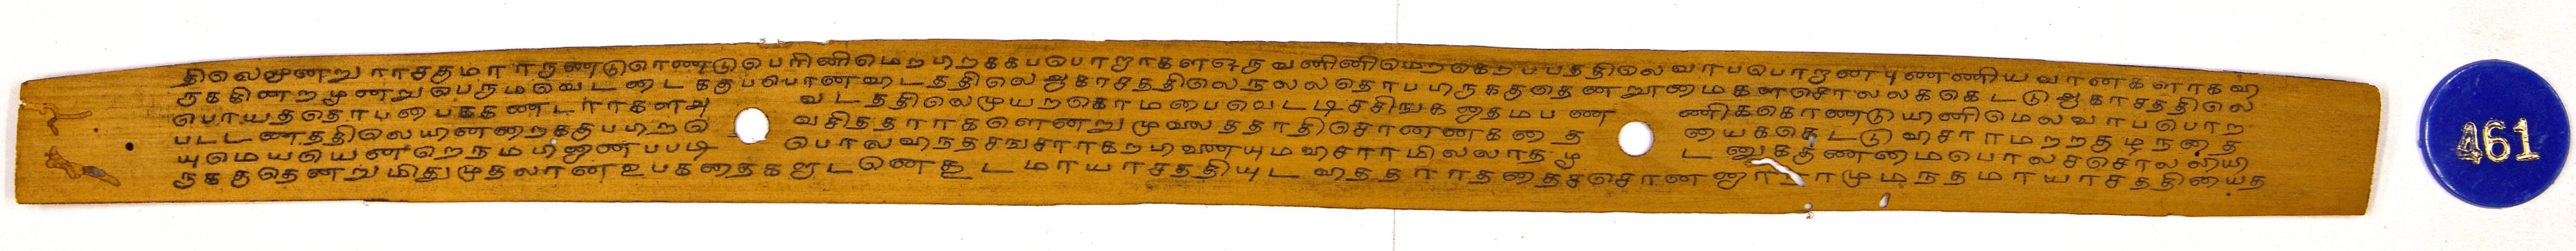 திலெமூனறு ராசகுமாரருணடுரெணடுபெரினிமெறபிறககபபொறாகளஒருவனினிமெறகெறபபத்திலெவாபபொறுணபுணணியவானகளாகஇ
ருககினறமூனறுபெருமவெடடைககுபபொனஇடத்திலெஆகாசத்திலெநலலதொபபிருககுதெனறூமைகளசொலலககெடடுஆகாசத்திலெ
பொயத்தொபபைககணடாரகளஅ வடத்திலெமுயறகொமபைவெடடிசசிஙகதைமபண ணிககொணடுயினிமெலவாபபொற
படடணத்திலெயினறைககுபபிறவெ வசித்தாரகளெனறுமூவலத்தாதிசொனனகதை யைககெடடுவிசாரமறறகுழநதை
யுமெயியெனறெநமபினனபபடி பொலஇநதசஙசாரகறபிணையுமவிசாரமிலலாதகு டனுககுணமைபொலசசொலலியி
ருககுதெனறுமிதுமுதலானஉபகதைகளுடனெகூடமாயாசத்தியுடஇததாரதததைசசொனனூராமுமநதமாயாசத்தியைத
461